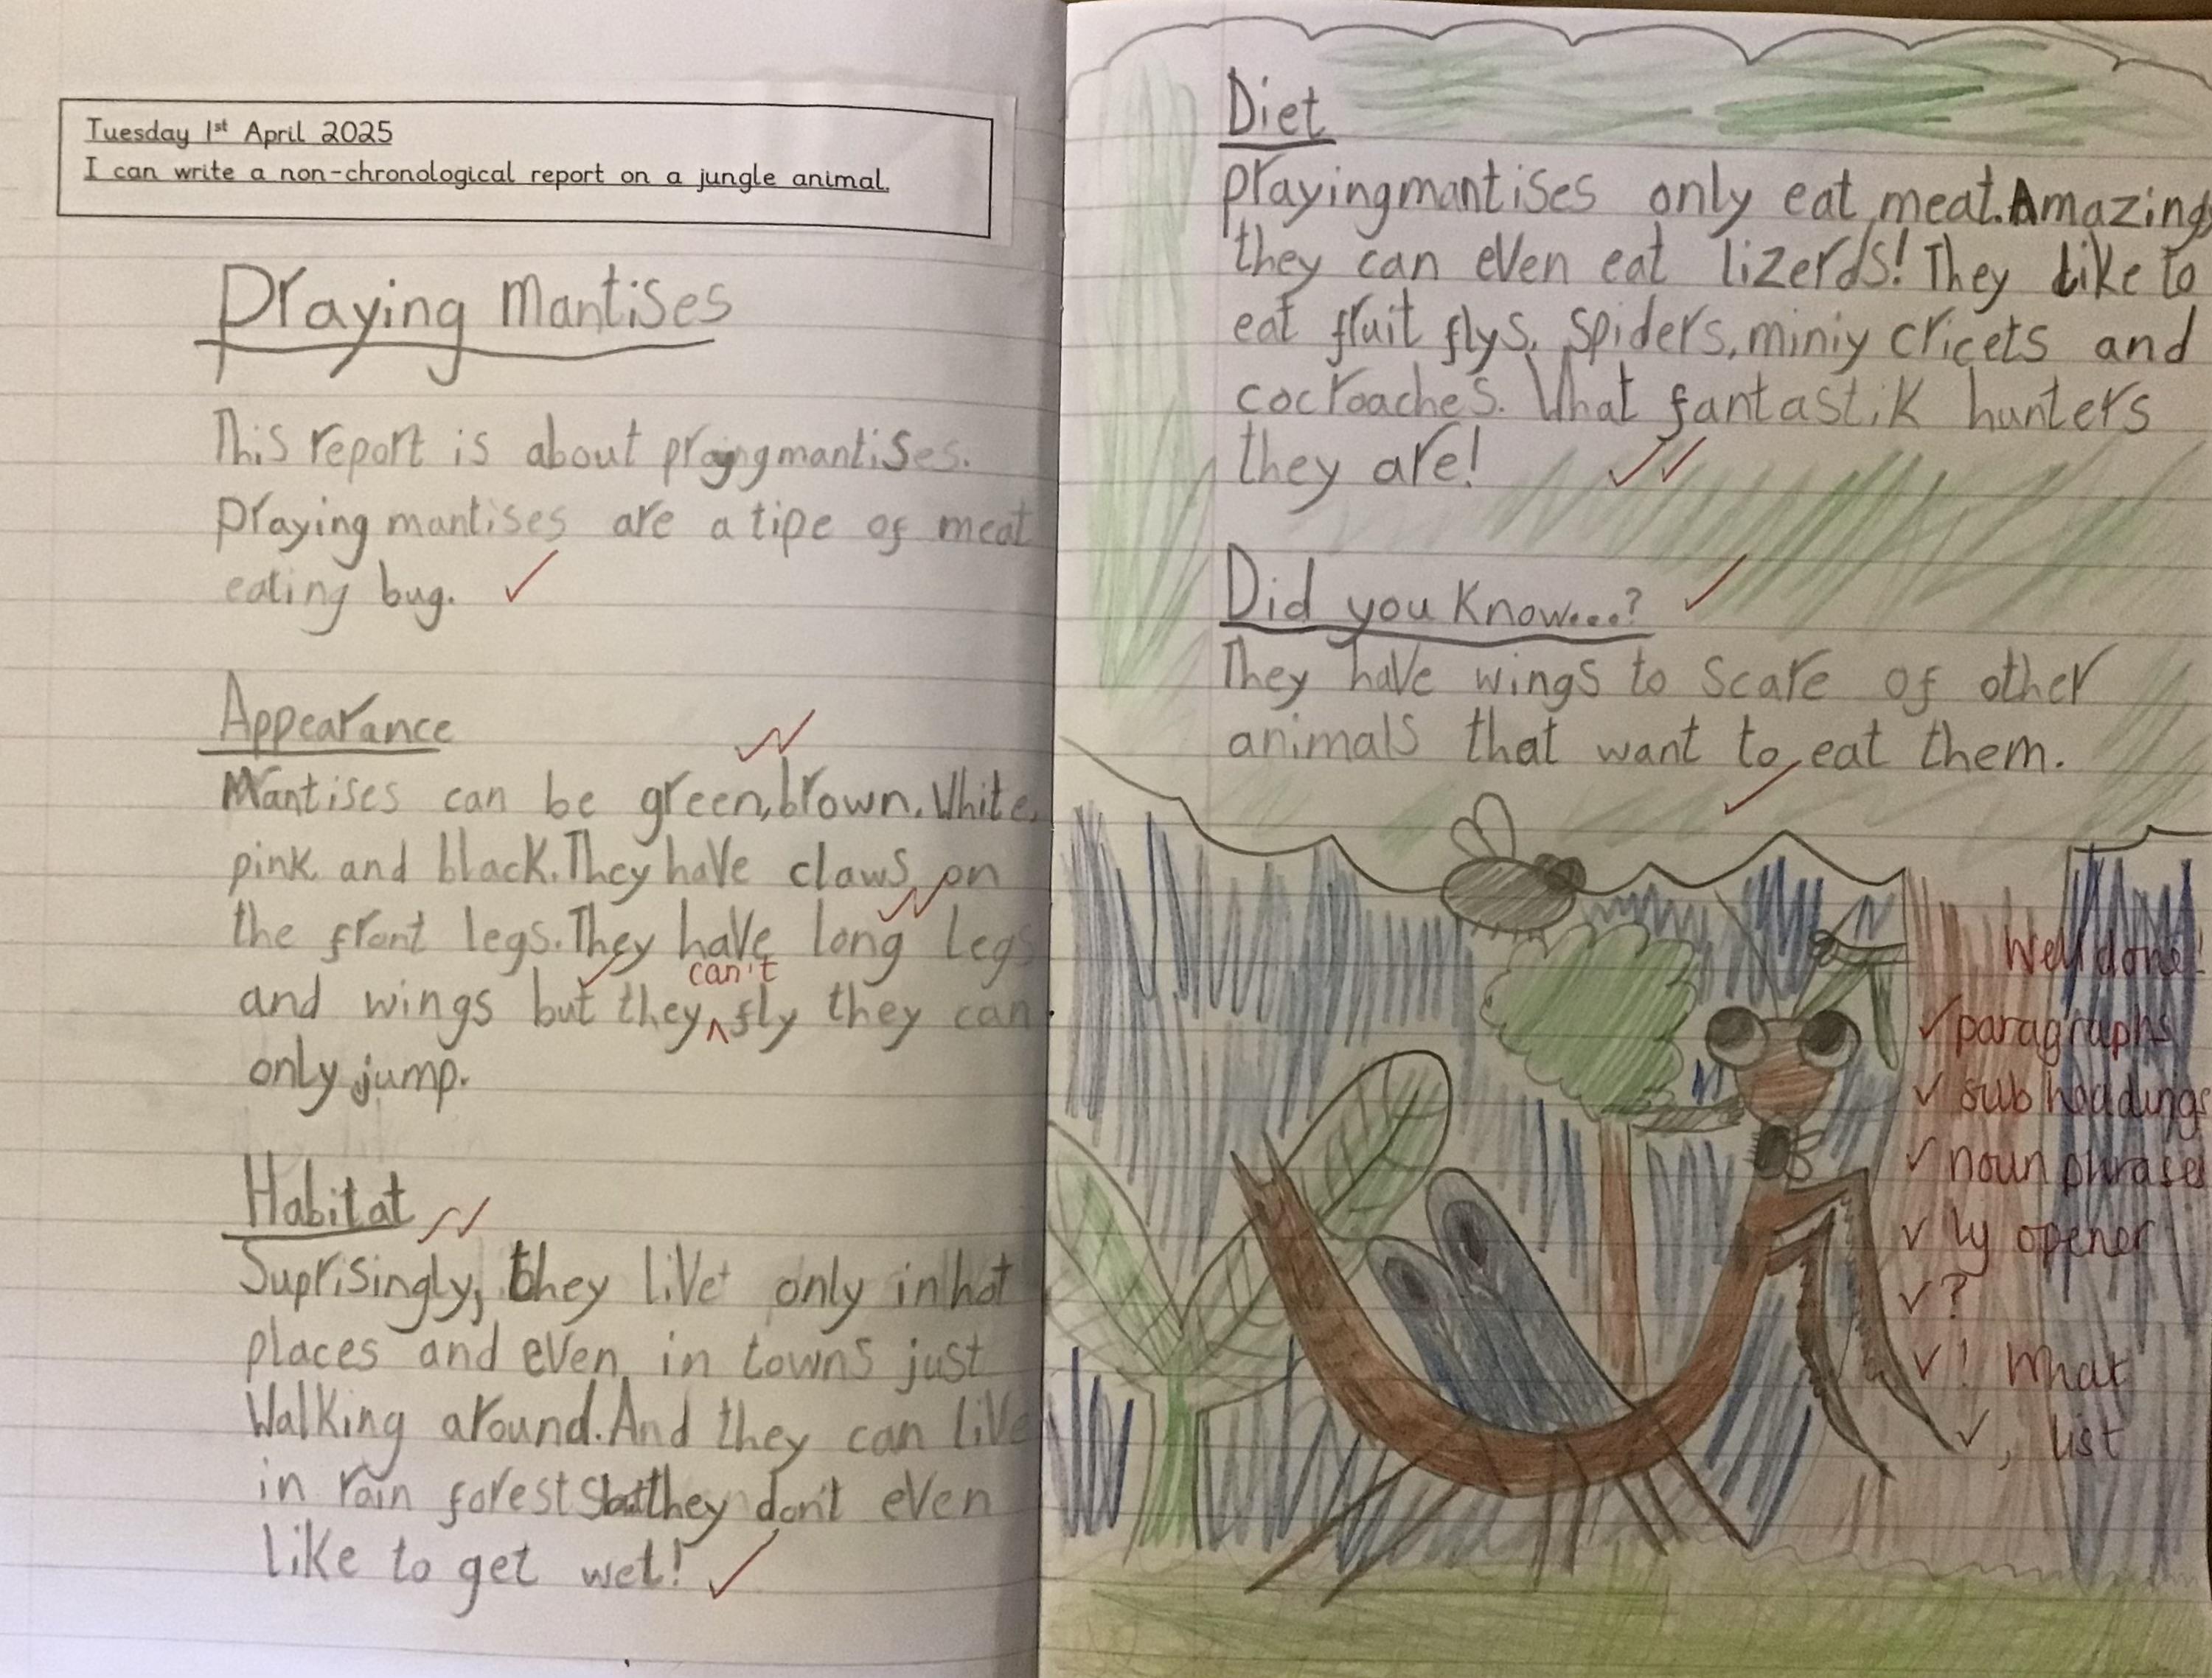 Tuesday 1st April 2025
I can write a non-chronological report on a jungle animal.
Praying mantises
This report is about prayng mantises.
Praying mantises are a tipe of meat
eating bug.
Appearance
Mantises can be green, brown, White,
pink and black. They have claws on
the front legs. They have long legs
can't
and wings but they fly they can
only jump.
Habitat
Suprisingly, they live only in hot
places and even in towns just
Walking around. And they can live
in rain forests but they don't even
like to get wet!
Diet
prayingmantises only eat meat. Amazing
they can even eat lizerds! They like to
eat fruit flys, Spiders, miniy cricets and
cocroaches. What fantastik hunters
they are!
Did you Know...?
They have wings to scare of other
animals that want to eat them.
Well done!
✓ paragraphs
✓ sub headings
✓ noun phrases
✓ ly opener
✓ ?
✓ ! What
✓ , list